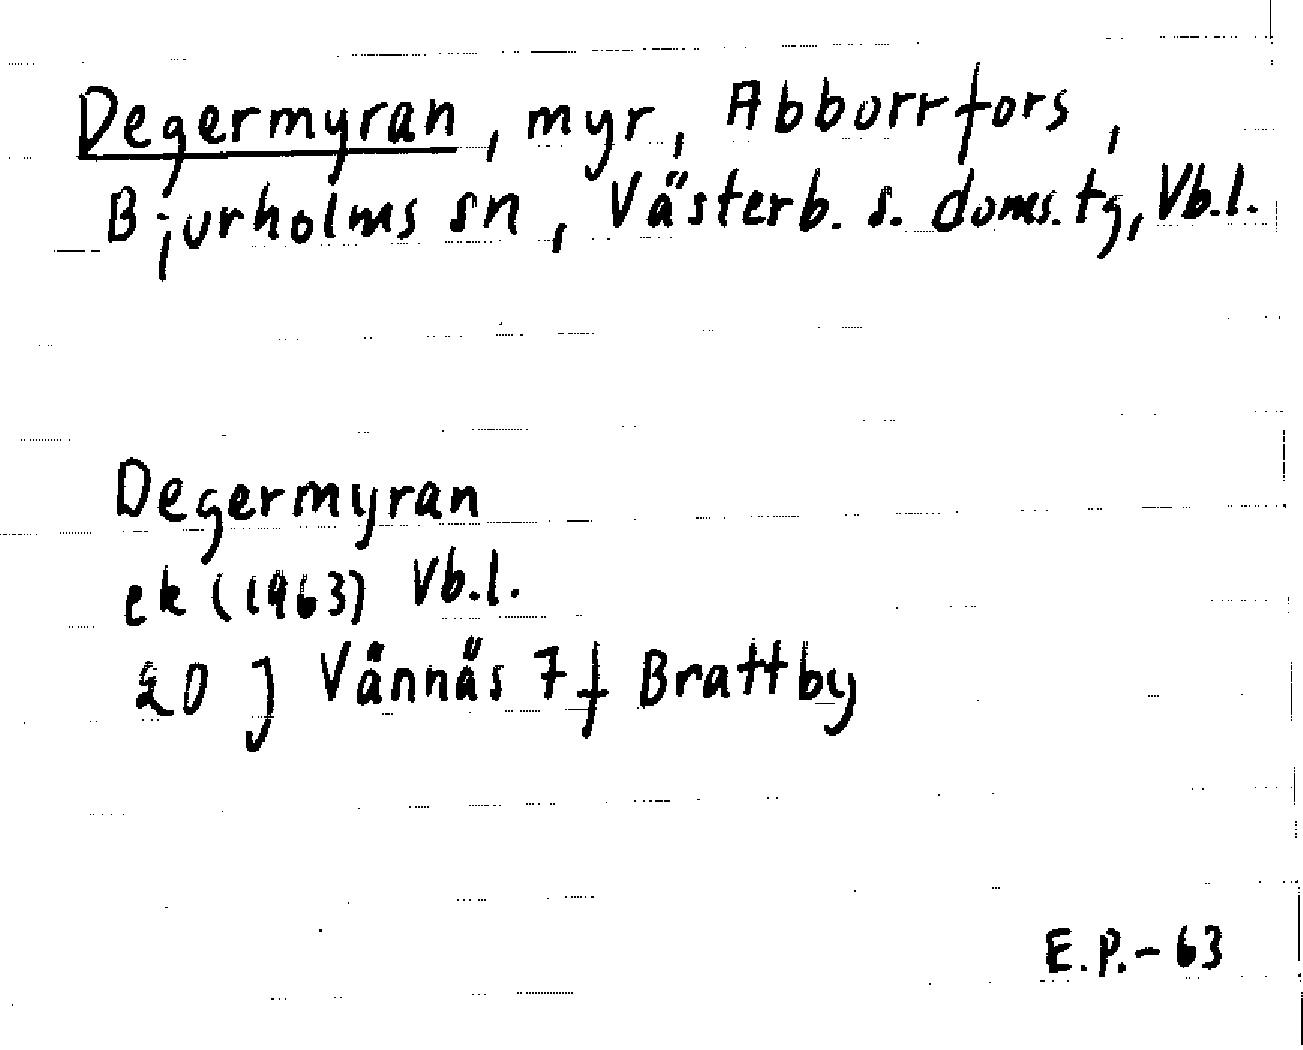 Degermyran, myr, Abborrfors,
Bjurholms sn, Västerb. s. doms. tg, Vb.l.
Degermyran
ek (1963) Vb.l.
20 J Vännäs 7f Brattby
E.P.-63